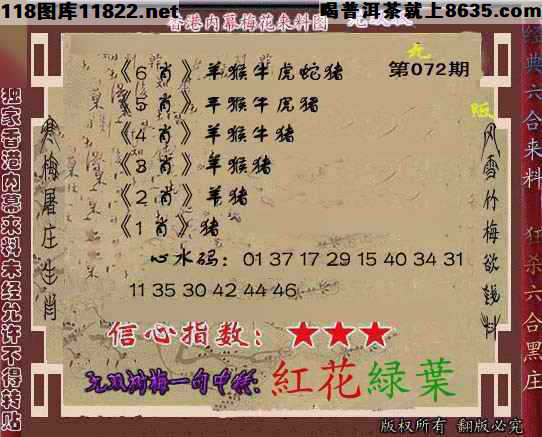 118图库11822.net
喝普洱茶就上8635.com
香港内幕梅花来料图
第072期
《6肖》羊猴牛虎蛇猪
《5肖》羊猴牛虎猪
《4肖》羊猴牛猪
《3肖》羊猴猪
《2肖》羊猪
《1肖》猪
心水码：01 37 17 29 15 40 34 31
11 35 30 42 44 46
信心指数：★★★
紅花緑葉
版权所有 翻版必究
独家香港内幕来料未经允许不得转贴
寒梅屠庄生肖
风雪竹梅欲钱料
经典六合来料
狂杀六合黑庄